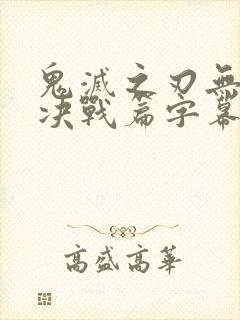 鬼滅之刃無
決戰篇字幕
高盛高華